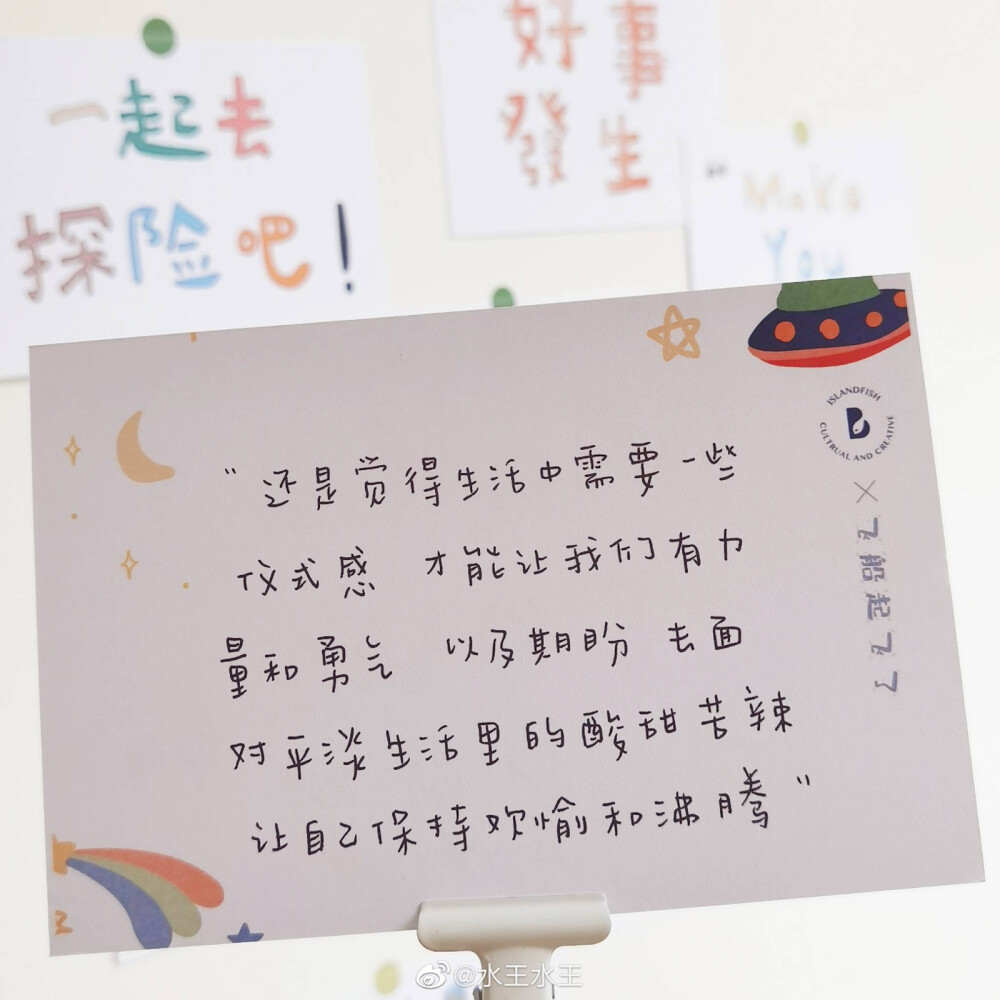 一起去
探险吧！
好事
發生
"Make
You
ISLANDFISH
CULTRUAL AND CREATIVE
×飞船起飞了
"还是觉得生活中需要一些
仪式感 才能让我们有力
量和勇气 以及期盼 去面
对平淡生活里的酸甜苦辣
让自己保持欢愉和沸腾"
@水王水王